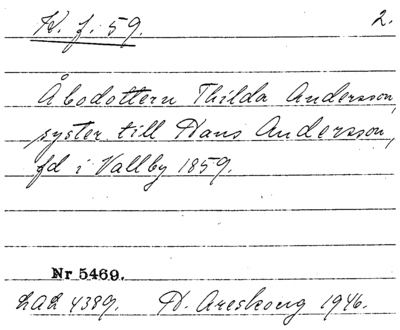 K. f. 59. 2.
Åbodottern Thilda Andersson,
syster till Hans Andersson,
fd i Vallby 1859.
Nr 5469.
LAL 4389. N. Areskoug 1946.